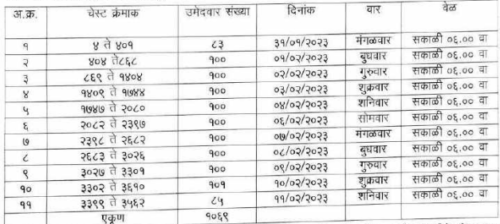 अ.क्र. चेस्ट क्रंमाक उमेदवार संख्या दिनांक वार वेळ
१ ४ ते ४०१ ८३ ३१/०१/२०२३ मंगळवार सकाळी ०६.०० वा
२ ४०४ ते८६८ १०० ०१/०२/२०२३ बुधवार सकाळी ०६.०० वा
३ ८६९ ते १४०४ १०० ०२/०२/२०२३ गुरुवार सकाळी ०६.०० वा
४ १४०९ ते १७४४ १०० ०३/०२/२०२३ शुक्रवार सकाळी ०६.०० वा
५ १७४७ ते २०८० १०० ०४/०२/२०२३ शनिवार सकाळी ०६.०० वा
६ २०८२ ते २३९७ १०० ०६/०२/२०२३ सोमवार सकाळी ०६.०० वा
७ २३९८ ते २६८२ १०० ०७/०२/२०२३ मंगळवार सकाळी ०६.०० वा
८ २६८३ ते ३०२६ १०० ०८/०२/२०२३ बुधवार सकाळी ०६.०० वा
९ ३०२७ ते ३३०१ १०० ०९/०२/२०२३ गुरुवार सकाळी ०६.०० वा
१० ३३०२ ते ३६१० १०१ १०/०२/२०२३ शुक्रवार सकाळी ०६.०० वा
११ ३३९९ ते ३५६२ ८५ ११/०२/२०२३ शनिवार सकाळी ०६.०० वा
एकूण १०६९